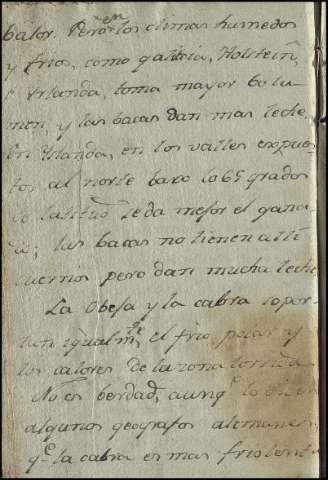 balor. Pero en los climas humedos
y frios, como galicia, Holstein,
é Yrlanda, toma mayor bolu-
men, y las bacas dan mas leche.
En Yslanda, en los valles expues-
tos al norte baxo los 65 grados
de latitud se da mejor el gana-
do; las bacas no tienen alli
cuernos pero dan mucha leche.
La Obeja y la cabra sopor-
tan igualmte. el frio polar y
los calores de la zona torrida.
No es berdad, aunqe. lo dicen
algunos geografos alemanes,
qe. la cabra es mas friolenta